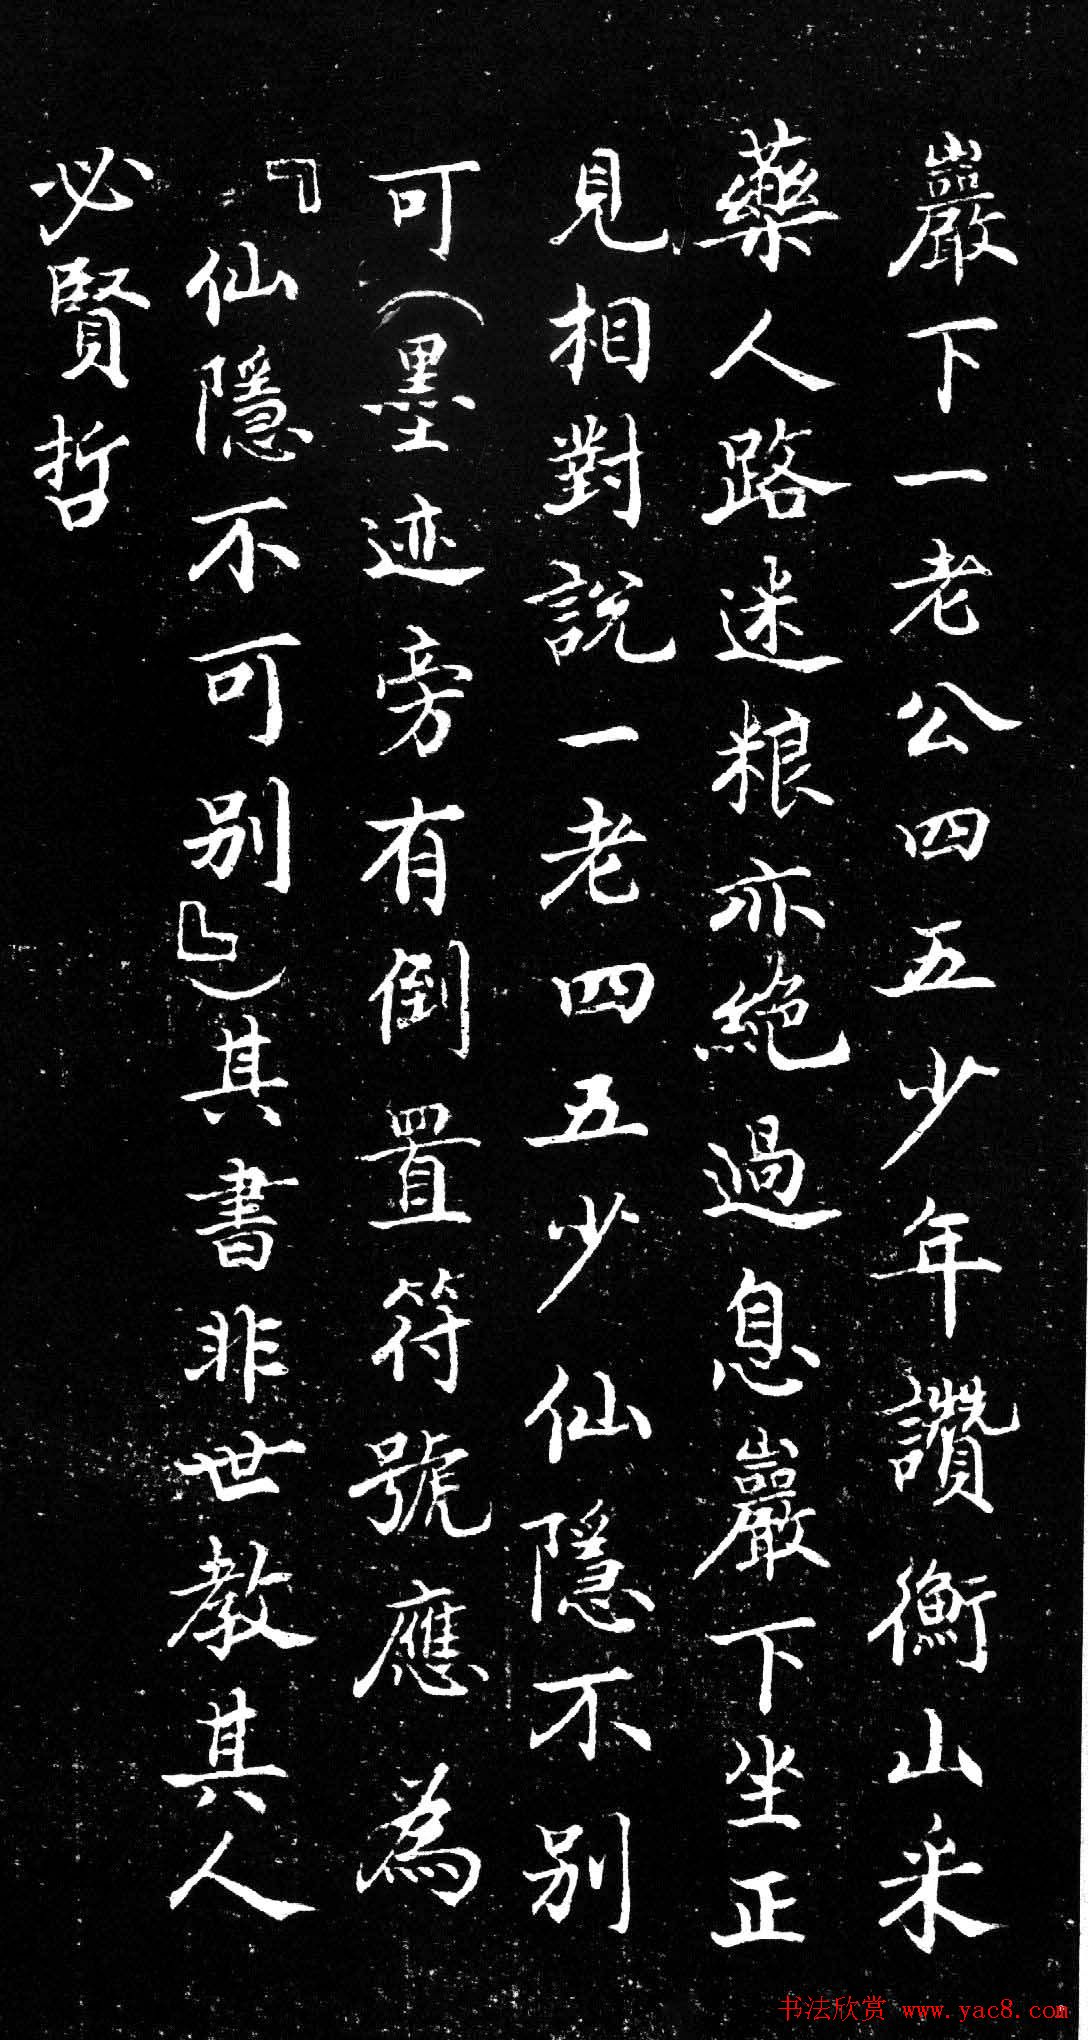 巖下一老公四五少年讚衡山采
藥人路迷粮亦絶過息巖下坐正
見相對說一老四五少仙隱不别
可（墨迹旁有倒置符號應為
『仙隱不可别』）其書非世教其人
必賢哲
书法欣赏 www.yac8.com